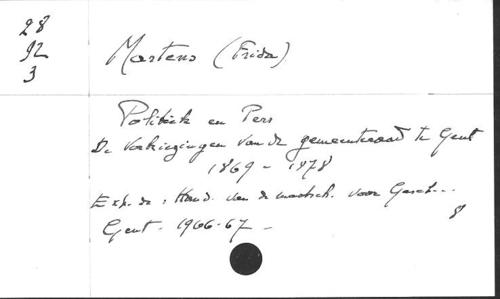 28
92
3
Martens (Frida)
Politiek en Pers
De verkiezingen van de gemeenteraad te Gent
1869 - 1878
Ext. de : Hand. van de maatsch. voor Gesch...
Gent - 1966-67 -
8